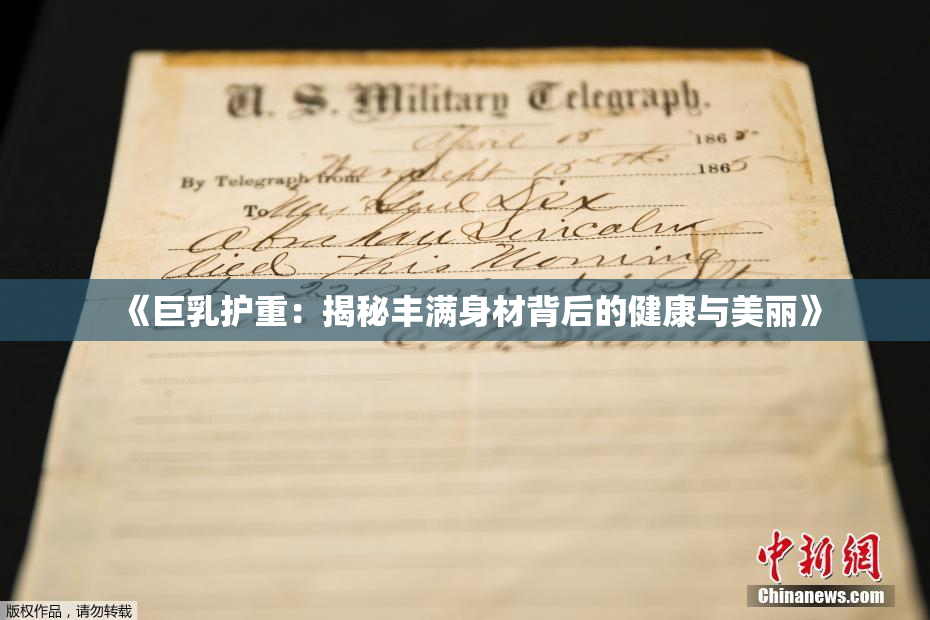 U. S. Military Telegraph.
April 15 1865
By Telegraph from War Dept 15th 1865
To Maj Genl Dix
Abraham Lincoln
died This Morning
at 22 minutes after
《巨乳护重：揭秘丰满身材背后的健康与美丽》
E. M. Stanton
中新网
Chinanews.com
版权作品，请勿转载